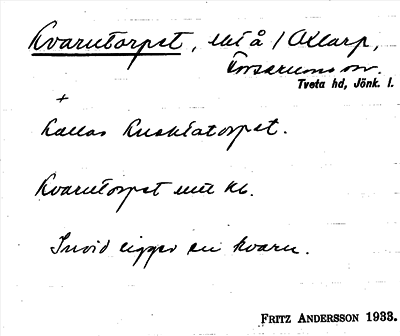 Kvarntorpet, utj å / Axlarp,
Forserums sn.
Tveta hd, Jönk. l.
+
kallas Knektatorpet.
Kvarntorpet utt kb.
Invid ligger en kvarn.
FRITZ ANDERSSON 1933.